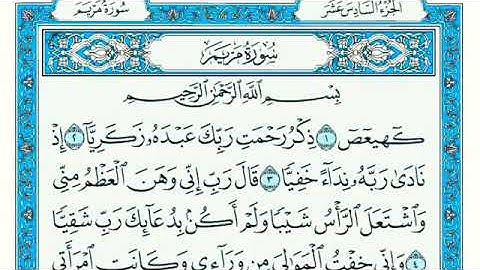 الجزء السادس عشر
سورة مريم
سورة مريم
بسم الله الرحمن الرحيم
كهيعص ١ ذكر رحمت ربك عبده زكريا ٢ إذ
نادى ربه نداء خفيا ٣ قال رب إني وهن العظم مني
واشتعل الرأس شيبا ولم أكن بدعائك رب شقيا
٤ وإني خفت الموالي من وراءي وكانت امرأتي